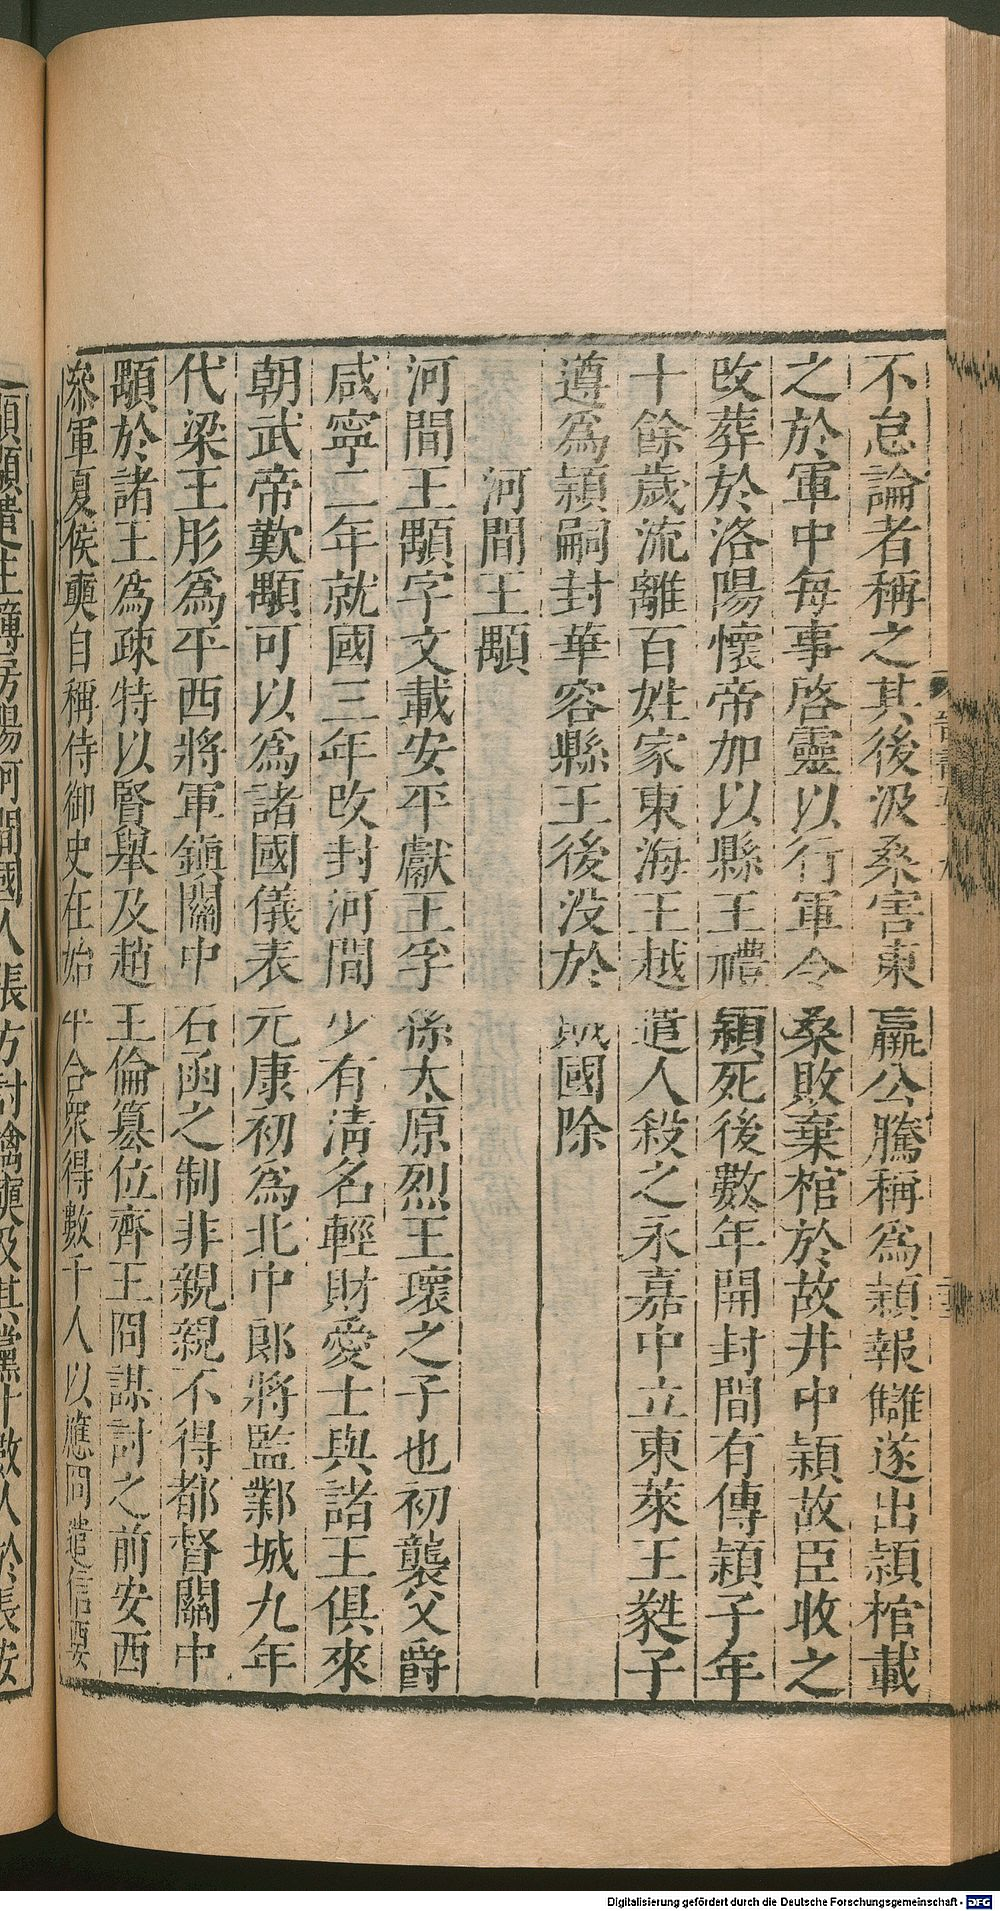 不怠論者稱之其後汲桑害東嬴公騰稱爲穎報讎遂出穎棺載
之於軍中每事啓靈以行軍令桑敗棄棺於故井中穎故臣收之
改葬於洛陽懷帝加以縣王禮穎死後數年開封間有傳穎子年
十餘歲流離百姓家東海王越遣人殺之永嘉中立東萊王蕤子
遵爲穎嗣封華容縣王後没於賊國除
河間王顒
河間王顒字文載安平獻王孚孫太原烈王瓌之子也初襲父爵
咸寧二年就國三年改封河間少有淸名輕財愛士與諸王俱來
朝武帝歎顒可以爲諸國儀表元康初爲北中郎將監鄴城九年
代梁王肜爲平西將軍鎭關中石函之制非親親不得都督關中
顒於諸王爲疎特以賢舉及趙王倫篡位齊王冏謀討之前安西
叅軍夏侯奭自稱侍御史在始平合衆得數千人以應冏遣信要
顒顒遣主簿房陽河間國人張方討擒奭及其黨十數人於長安
Digitalisierung gefördert durch die Deutsche Forschungsgemeinschaft - DFG